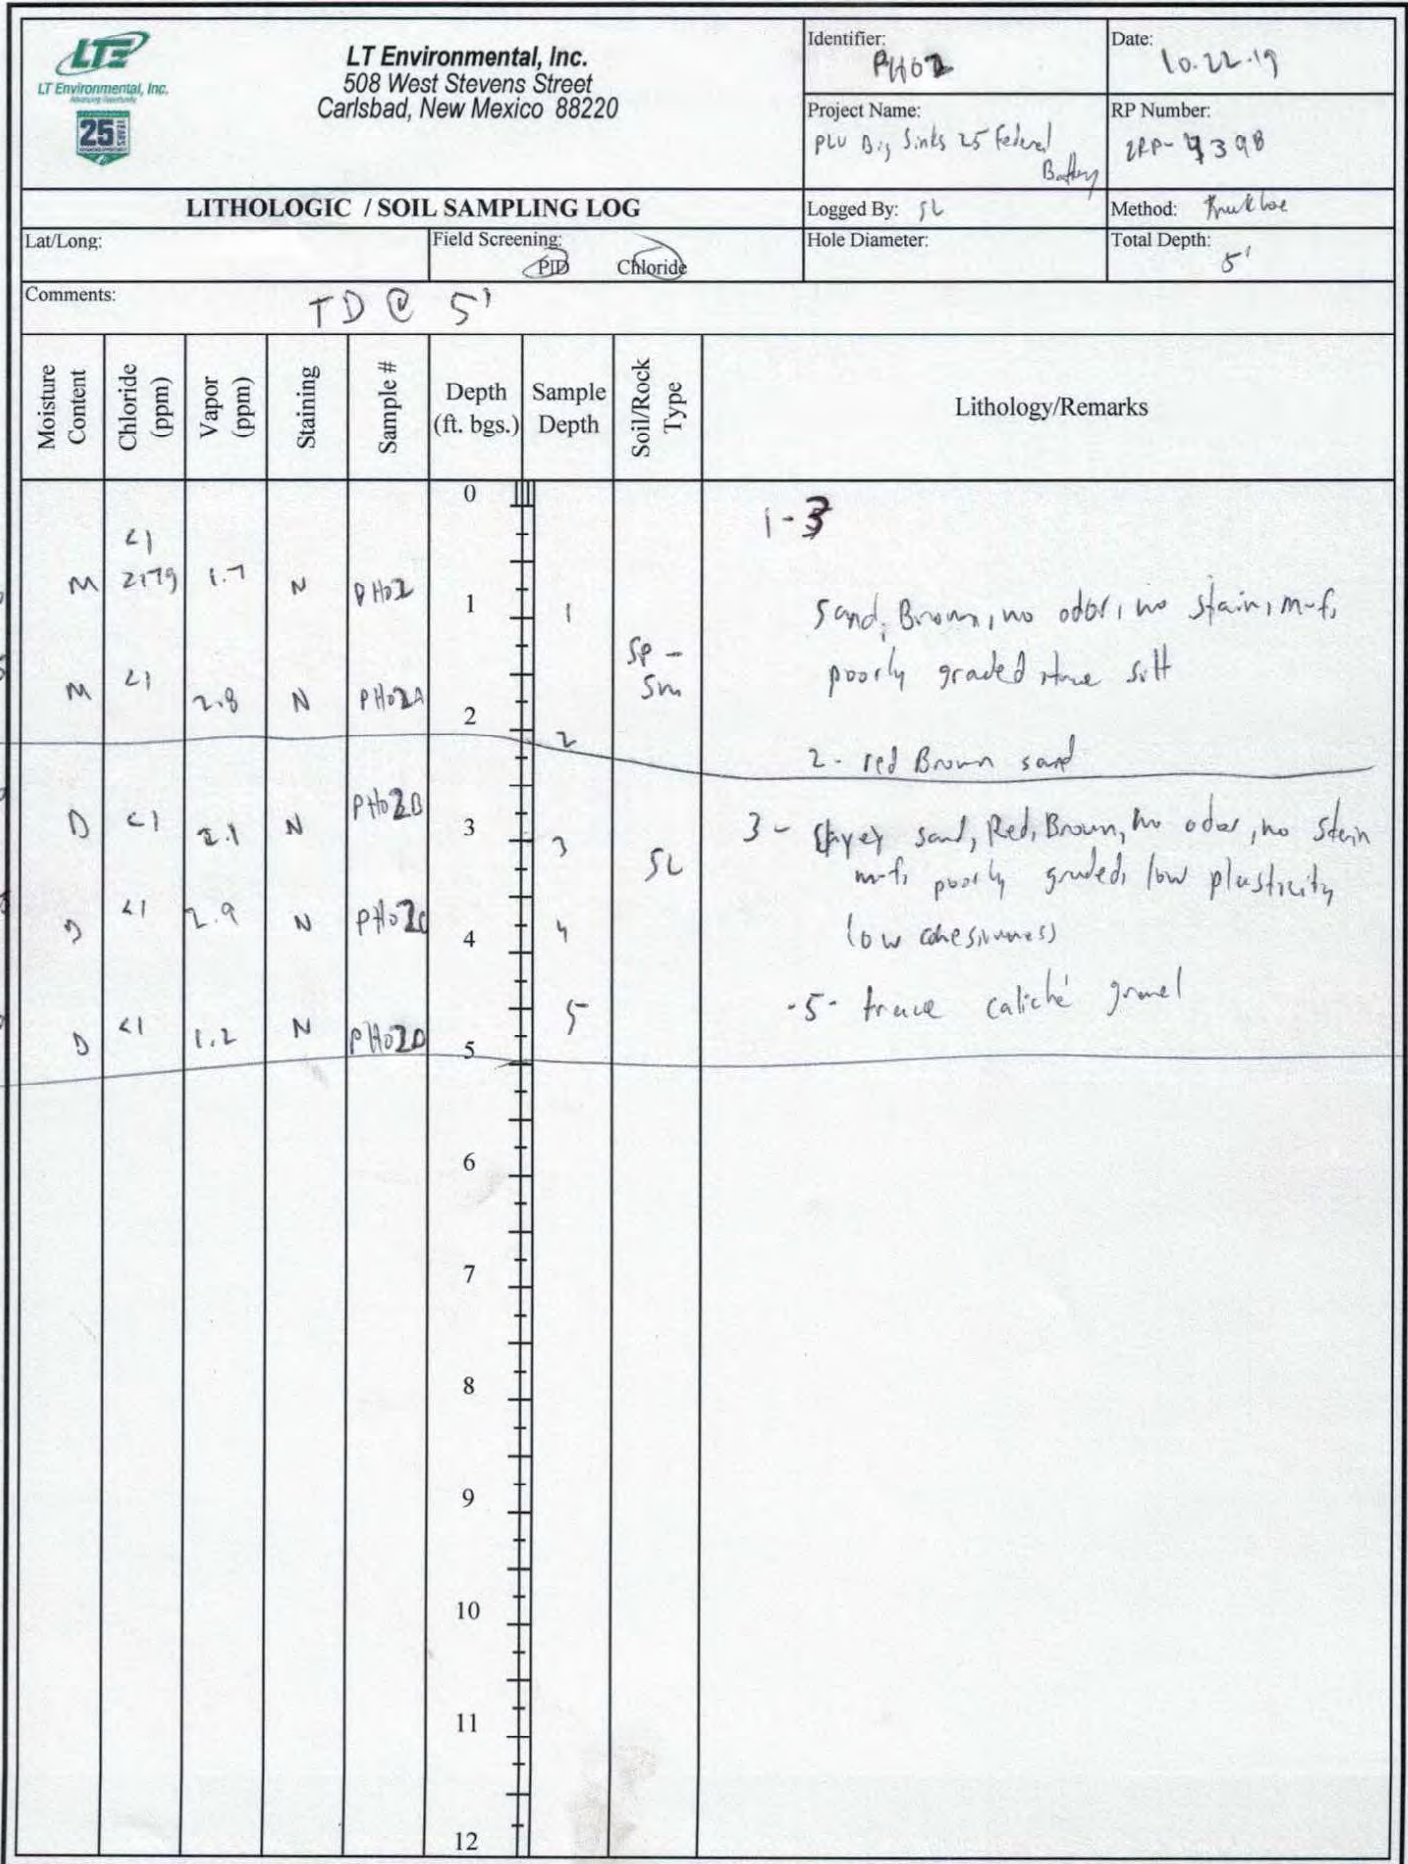 LTE
LT Environmental, Inc.
Advancing Opportunity
25 YEARS
LT Environmental, Inc.
508 West Stevens Street
Carlsbad, New Mexico 88220
Identifier:
PH02
Date:
10.22.19
Project Name:
PLU Big Sinks 25 Federal
Battery
RP Number:
2RP-
LITHOLOGIC / SOIL SAMPLING LOG
Logged By: SL
Method:
Lat/Long:
Field Screening:
PID Chloride
Hole Diameter:
Total Depth:
5'
Comments:
TD @ 5'
Moisture Content
Chloride (ppm)
Vapor (ppm)
Staining
Sample #
Depth (ft. bgs.)
Sample Depth
Soil/Rock Type
Lithology/Remarks
0
1-3
<1
M 2179 1.7 N PH02 1 1
Sand, Brown, no odor, no stain, m-f,
SP-
SM
poorly graded silt
M <1 2.8 N PH02A 2 2
2- red Brown sand
D <1 2.1 N PH02B 3 3
3- sand, Red, Brown, no odor, no stain
SC
m-f, poorly graded, low plasticity
D <1 2.9 N PH02C 4 4
low cohesiveness
-5- trace caliche gravel
D <1 1.2 N PH02D 5 5
6
7
8
9
10
11
12